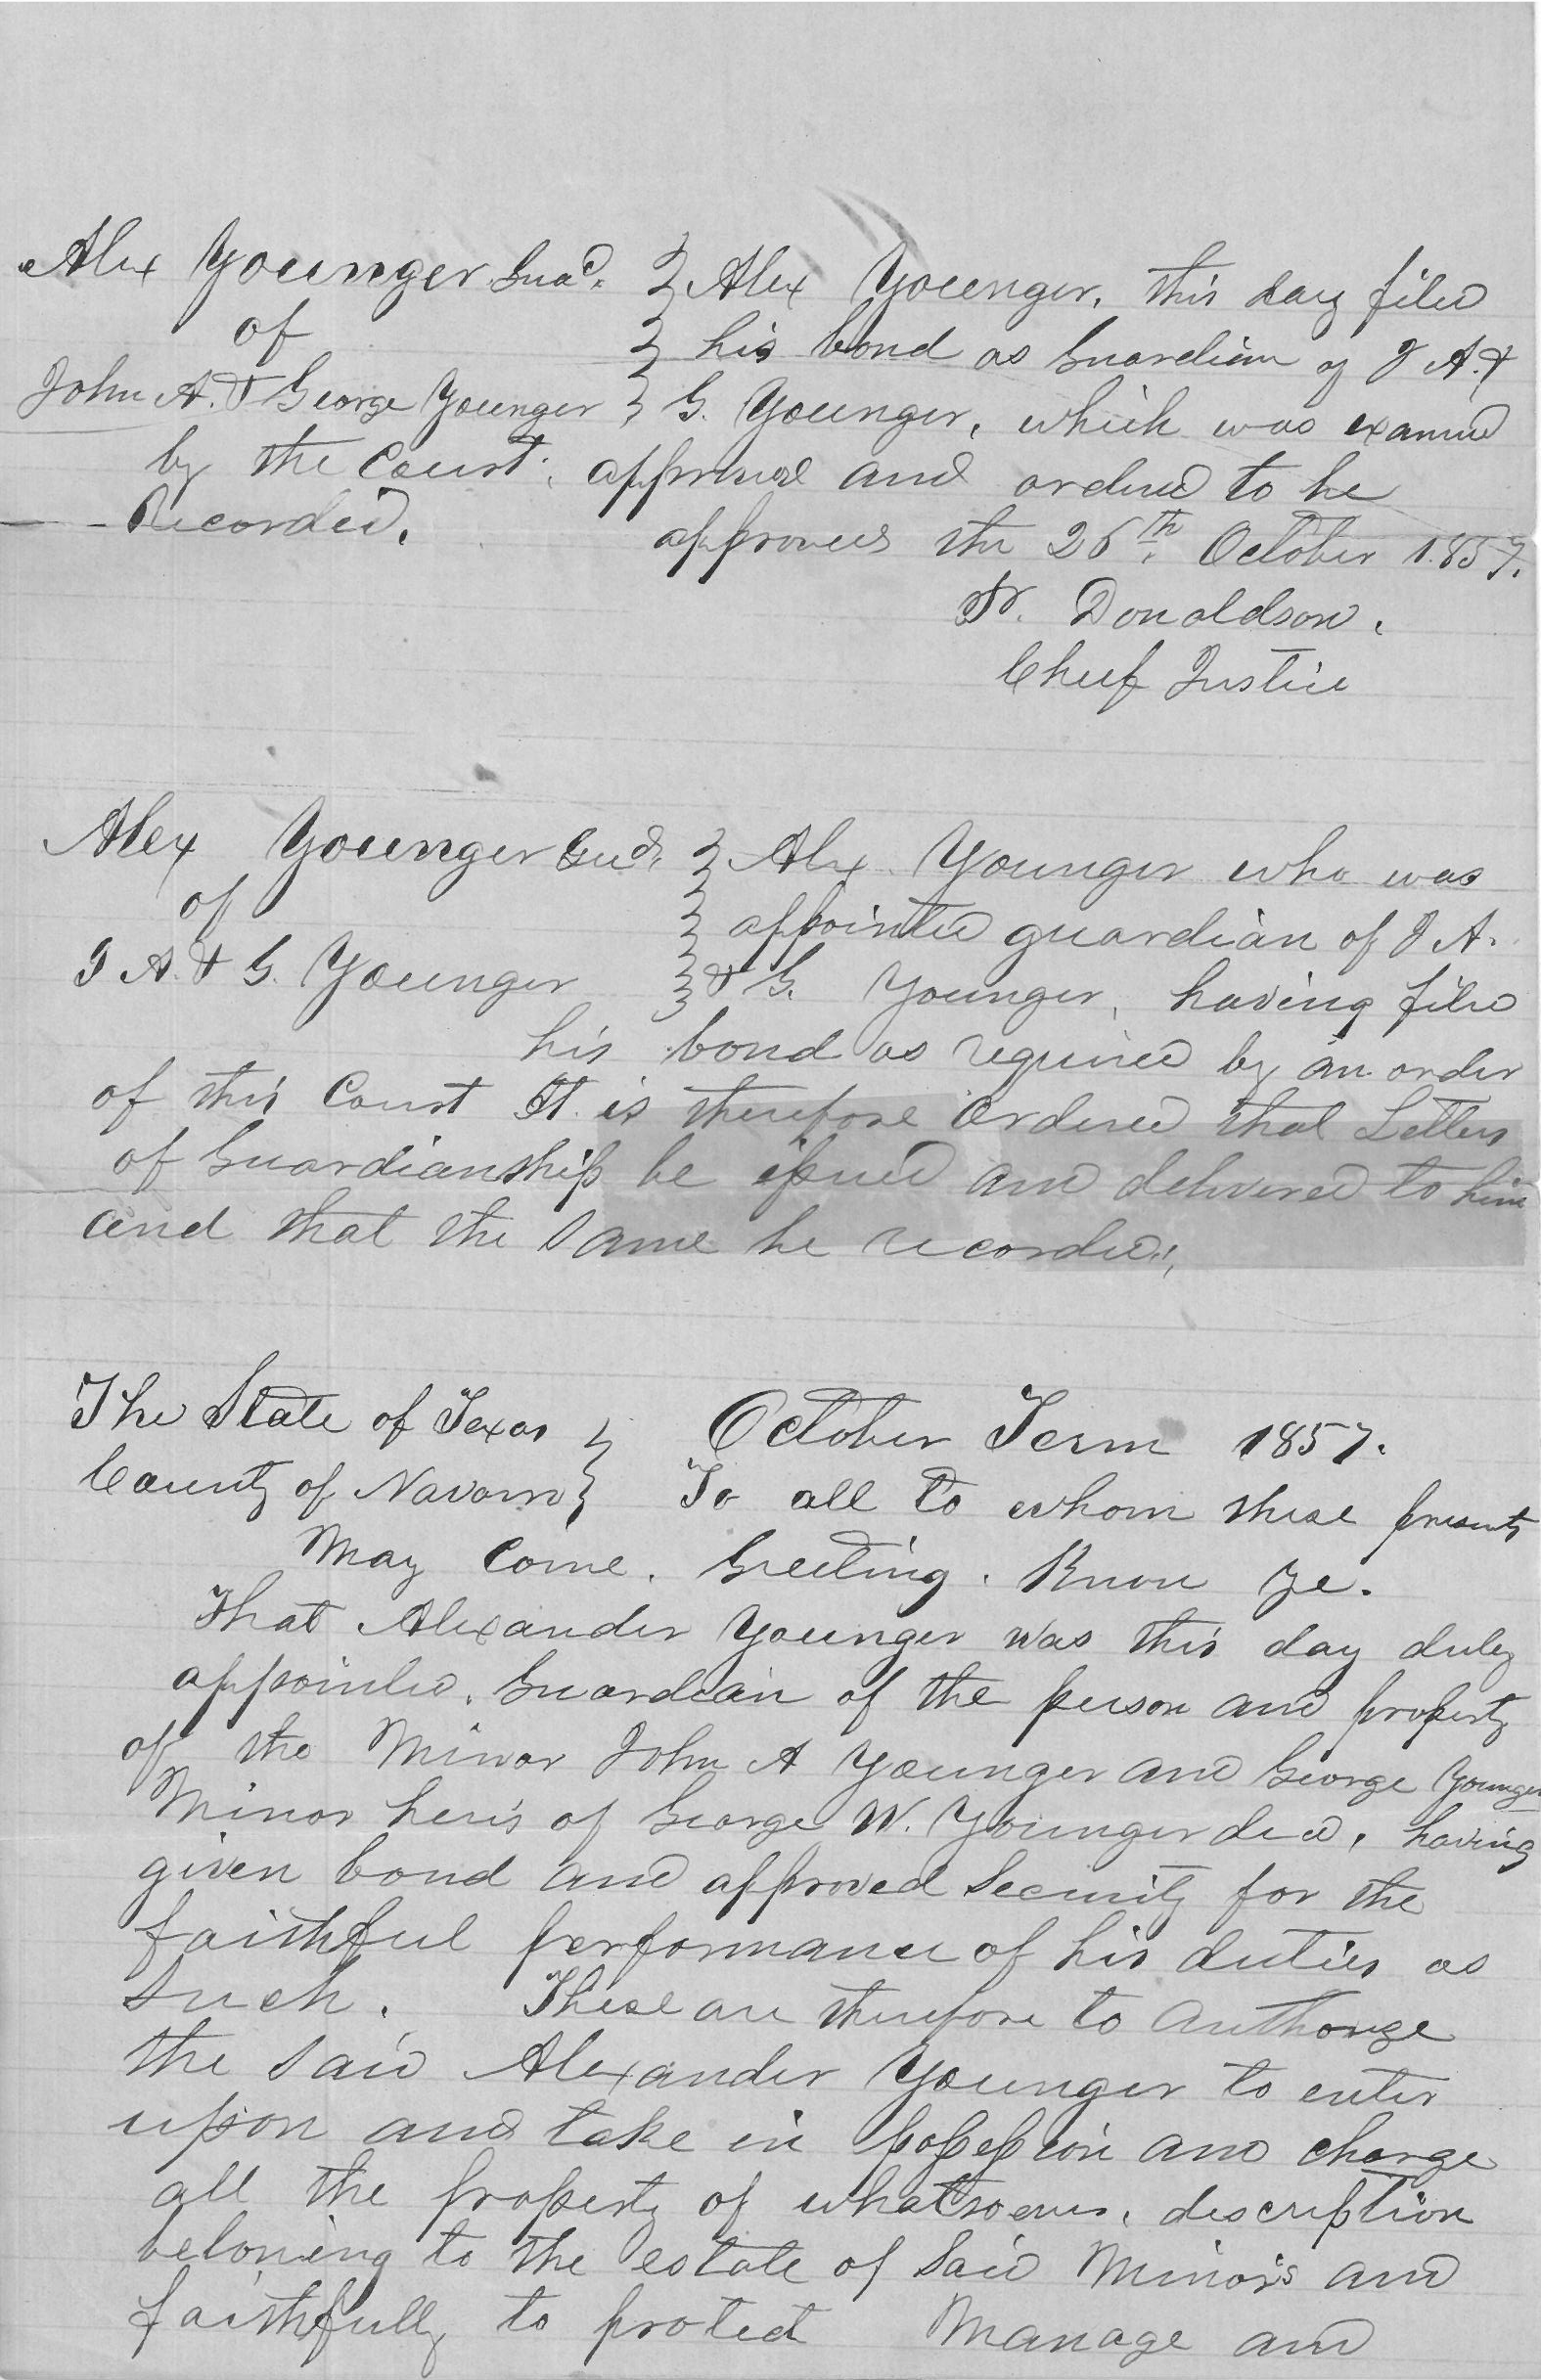 Alex Younger Guad. } Alex Younger, this day filed
of } his bond as Guardian of J A. &
John A. & George Younger } G. Younger, which was examined
by the Court, approved and ordered to be
Recorded. approved the 26th October 1857.
Donaldson.
Cheif Justice
Alex Younger Gud. } Alex Younger who was
of } appointed guardian of J A.
J A. & G. Younger } & G. Younger, having filed
his bond as required by an order
of this Court It is therefore ordered that Letters
of Guardianship be issued and delivered to him
and that the same be recorded.
The State of Texas } October Term 1857.
County of Navarro } To all to whom these presents
May Come. Greeting. Know ye.
That Alexander Younger was this day duly
appointed. Guardian of the person and property
of the Minor John A Younger and George Younger
Minor heirs of George W. Younger decd, having
given bond and approved Security for the
faithful performance of his duties as
Such. These are therefore to Authorize
the said Alexander Younger to enter
upon and take in possession and charge
all the property of whatsoever, description
beloning to the estate of said Minors and
faithfully to protect Manage and